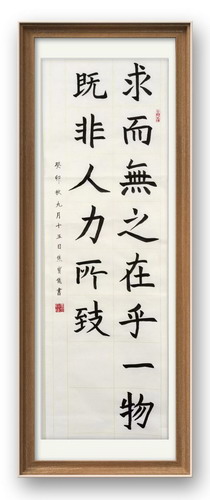 求而無之在乎一物
既非人力所致
癸卯秋九月十五日